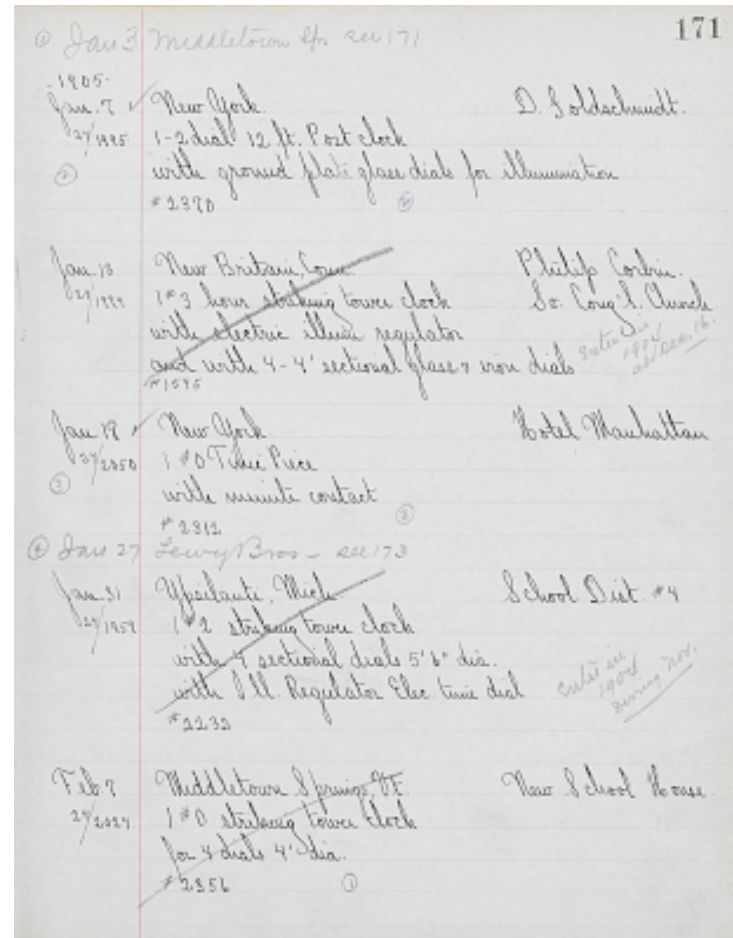 171
① Jan 31 Middletown Spr see 171
1905.
Jan. 7 ✓ New York. D. Goldschmidt.
27/1995 1-2 dial 12 ft. Post clock
② with ground plate glass dials for illumination
#2370 ②
Jan 13 New Britain, Conn. Philip Corbin.
27/1989 1 #3 hour striking tower clock So. Cong'l. Church
with electric illum regulator
and with 4-4' sectional glass & iron dials
Enter in 1904 as Dec. 16.
#1595
Jan 19 ✓ New York Hotel Manhattan
27/2050 1 #0 Time Piece
③ with minute contact
#2312 ③
④ Jan 27 Lewy Bros - see 173
Jan 31 Ypsilanti, Mich School Dist. #4
27/1959 1 #2 striking tower clock
with 4 sectional dials 5'6" dia.
with Ill. Regulator Elec time dial
enter in 1904 during Nov.
#2232
Feb 7 Middletown Springs, Vt. New School House
27/2027 1 #0 striking tower clock
for 4 dials 4' dia.
#2356 ①